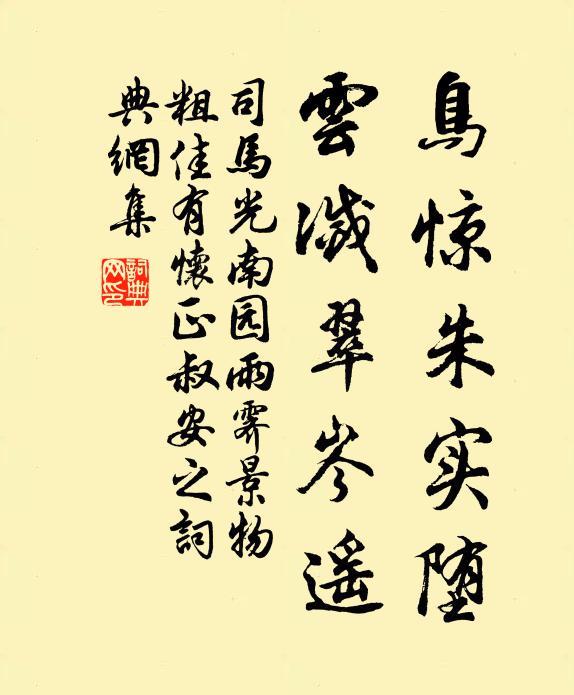 鳥惊朱实堕
雲滅翠岑遥
司馬光南园雨霽景物
粗佳有懷正叔安之詞
典網集
詞典
网印